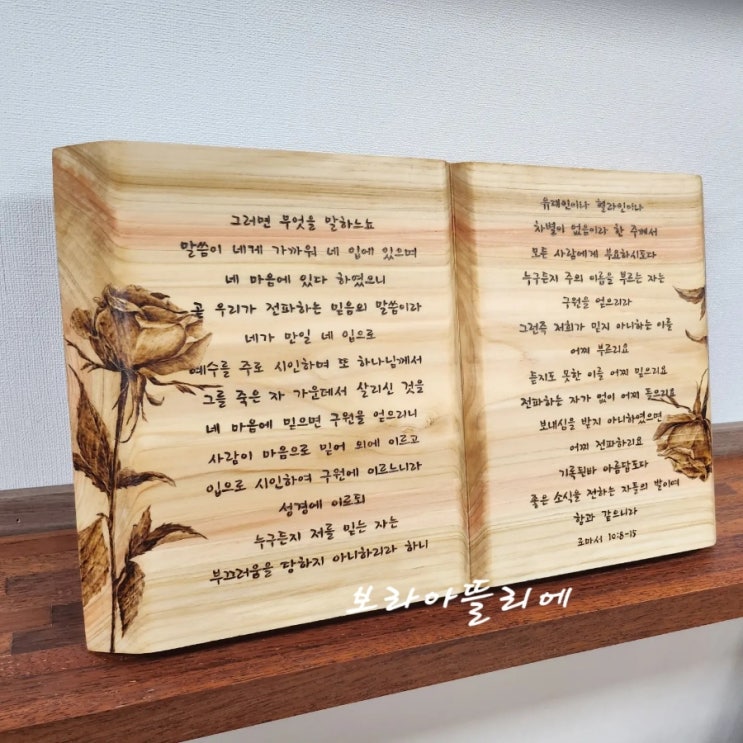 그러면 무엇을 말하느뇨
말씀이 네게 가까워 네 입에 있으며
네 마음에 있다 하였으니
곧 우리가 전파하는 믿음의 말씀이라
네가 만일 네 입으로
예수를 주로 시인하며 또 하나님께서
그를 죽은 자 가운데서 살리신 것을
네 마음에 믿으면 구원을 얻으리니
사람이 마음으로 믿어 의에 이르고
입으로 시인하여 구원에 이르느니라
성경에 이르되
누구든지 저를 믿는 자는
부끄러움을 당하지 아니하리라 하니
유대인이나 헬라인이나
차별이 없음이라 한 주께서
모든 사람에게 부요하시도다
누구든지 주의 이름을 부르는 자는
구원을 얻으리라
그런즉 저희가 믿지 아니하는 이를
어찌 부르리요
듣지도 못한 이를 어찌 믿으리요
전파하는 자가 없이 어찌 들으리요
보내심을 받지 아니하였으면
어찌 전파하리요
기록된바 아름답도다
좋은 소식을 전하는 자들의 발이여
함과 같으니라
로마서 10:8-15
보라아뜰리에